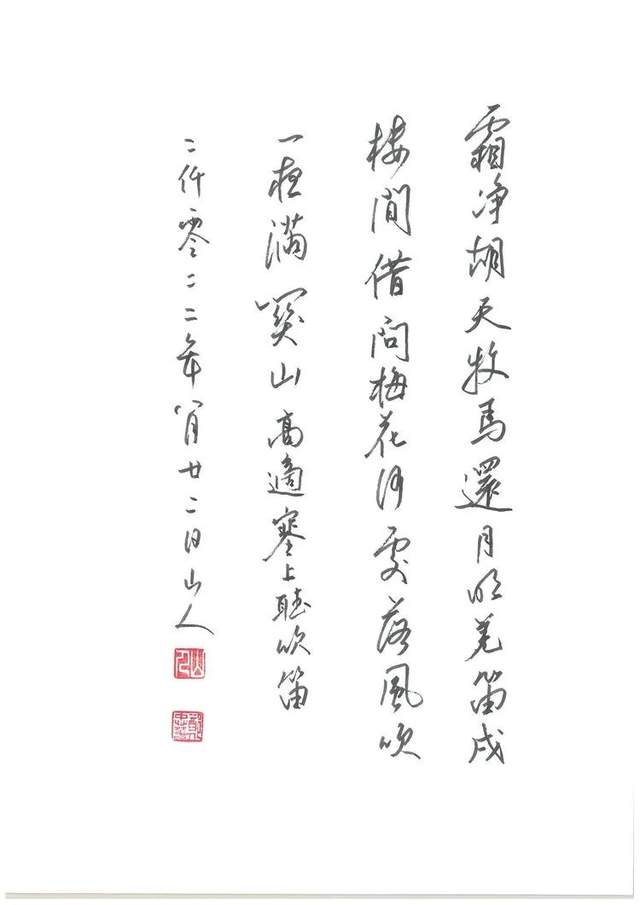 霜净胡天牧馬還月明羌笛戍
樓間借問梅花何處落風吹
一夜滿關山高適塞上聽吹笛
二仟零二二年八月廿二日山人
山人